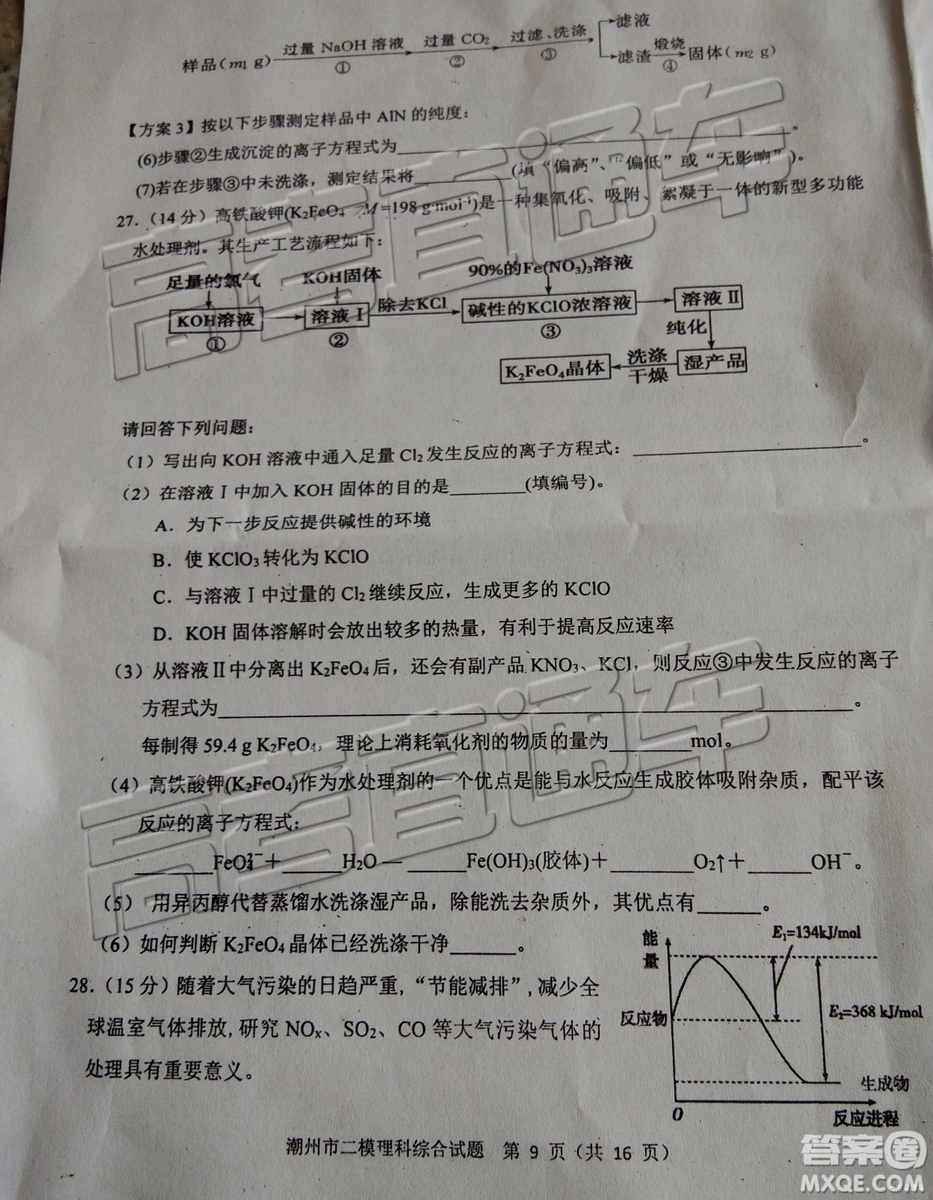 样品(m₁ g) 过量 NaOH 溶液 ① 过量 CO₂ ② 过滤、洗涤 ③ 滤液
滤渣 煅烧 ④ 固体(m₂ g)
【方案 3】按以下步骤测定样品中 AlN 的纯度：
(6)步骤②生成沉淀的离子方程式为____________________。
(7)若在步骤③中未洗涤，测定结果将________(填“偏高”、“偏低”或“无影响”)。
27.（14 分）高铁酸钾(K₂FeO₄ M=198 g·mol⁻¹)是一种集氧化、吸附、絮凝于一体的新型多功能
水处理剂。其生产工艺流程如下：
足量的氯气 KOH固体 90%的Fe(NO₃)₃溶液
KOH溶液 溶液Ⅰ 除去KCl 碱性的KClO浓溶液 溶液Ⅱ
① ② ③ 纯化
K₂FeO₄晶体 洗涤 干燥 湿产品
请回答下列问题：
（1）写出向 KOH 溶液中通入足量 Cl₂发生反应的离子方程式：____________________。
（2）在溶液Ⅰ中加入 KOH 固体的目的是________(填编号)。
A．为下一步反应提供碱性的环境
B．使 KClO₃转化为 KClO
C．与溶液Ⅰ中过量的 Cl₂继续反应，生成更多的 KClO
D．KOH 固体溶解时会放出较多的热量，有利于提高反应速率
（3）从溶液Ⅱ中分离出 K₂FeO₄后，还会有副产品 KNO₃、KCl，则反应③中发生反应的离子
方程式为____________________。
每制得 59.4 g K₂FeO₄，理论上消耗氧化剂的物质的量为________mol。
（4）高铁酸钾(K₂FeO₄)作为水处理剂的一个优点是能与水反应生成胶体吸附杂质，配平该
反应的离子方程式：
________FeO₄²⁻＋______H₂O — ______Fe(OH)₃(胶体)＋________O₂↑＋______OH⁻。
（5） 用异丙醇代替蒸馏水洗涤湿产品，除能洗去杂质外，其优点有______。
（6）如何判断 K₂FeO₄晶体已经洗涤干净______。
28.（15 分）随着大气污染的日趋严重，“节能减排”，减少全
球温室气体排放，研究 NOₓ、SO₂、CO 等大气污染气体的
处理具有重要意义。
能量
E₁=134kJ/mol
反应物
E₂=368 kJ/mol
生成物
O
反应进程
潮州市二模理科综合试题 第 9 页（共 16 页）
高考直通车
高考直通车
答案圈
MXQE.COM